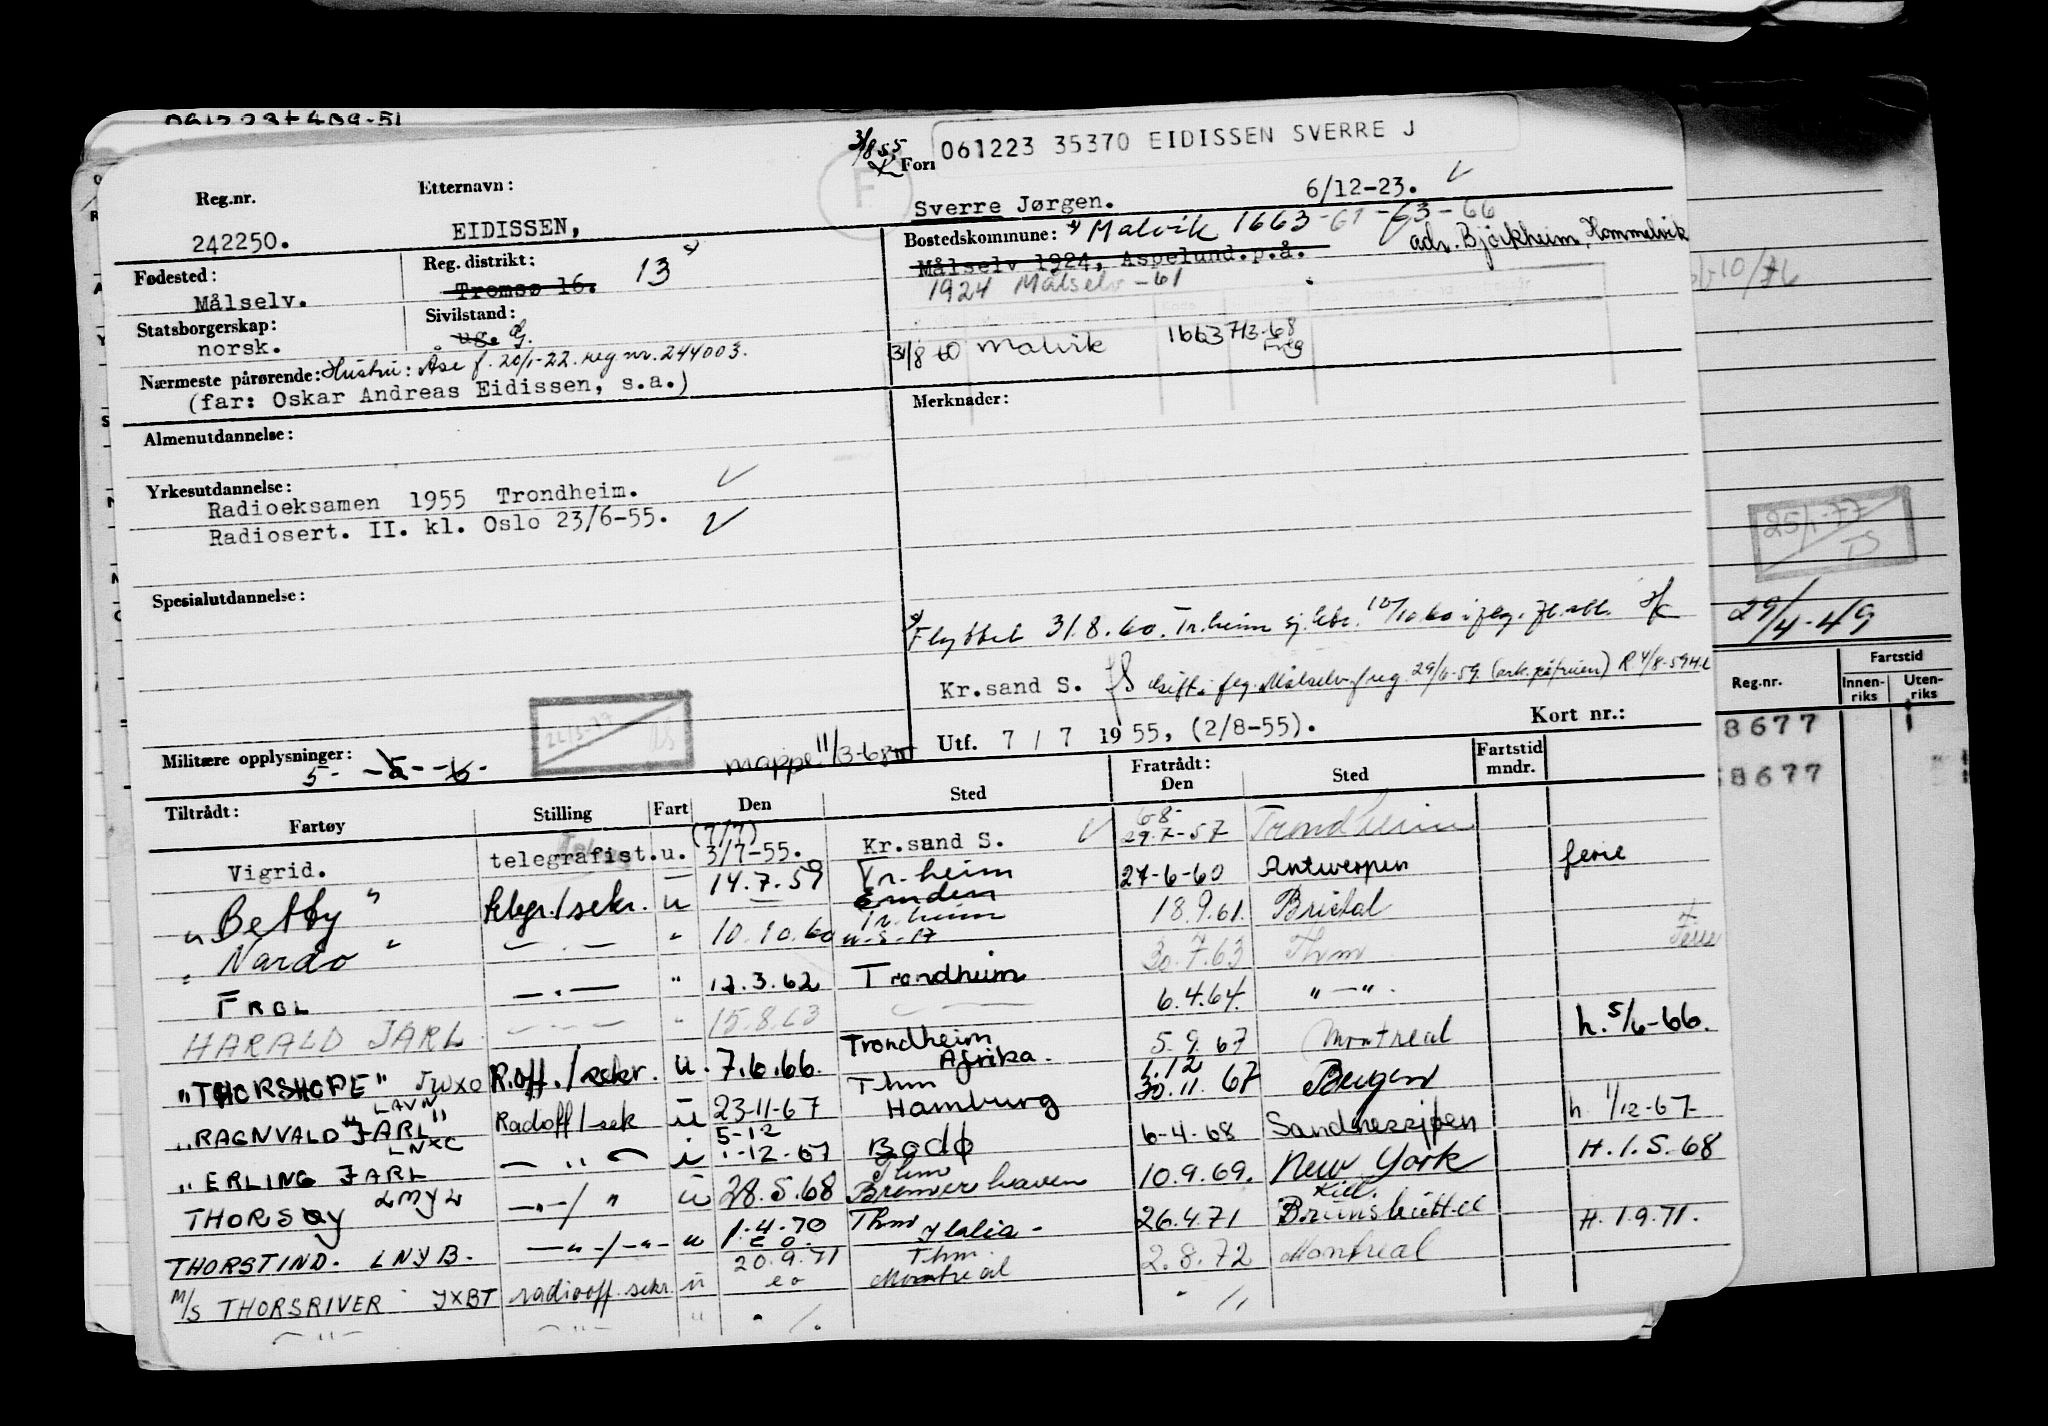 061223 35370 EIDISSEN SVERRE J
3/8 55
Reg.nr. Etternavn:
242250. EIDISSEN, Sverre Jørgen. 6/12-23.
Fødested: Målselv.
Reg. distrikt: Tromsø 16. 13
Bostedskommune: Malvik 1663-61-63-66
adr. Bjørkheim, Hommelvik
Målselv 1924, Aspelund.p.å.
1924 Målselv -61
Statsborgerskap: norsk.
Sivilstand: ug. g.
31/8 60 Malvik 1663 713-68
Nærmeste pårørende: Hustru: Åse f. 20/1-22. reg nr. 244003.
(far: Oskar Andreas Eidissen, s.a.)
Merknader:
Almenutdannelse:
Yrkesutdannelse:
Radioeksamen 1955 Trondheim.
Radiosert. II. kl. Oslo 23/6-55.
Spesialutdannelse:
Flyttet 31.8.60. Tr.heim 10/10 60
Kr.sand S. Gift. Målselv 29/6-59
Utf. 7 / 7 1955, (2/8-55). Kort nr.:
Militære opplysninger: 5-
mappe 11/3-68
Tiltrådt: Fartøy Stilling Fart Den Sted Fratrådt: Den Sted Fartstid mndr.
Vigrid. telegrafist. u. (7/7) 3/7-55. Kr.sand S. 29.7-57 Trondheim
" Betty " telegr./sekr. u 14.7.59 Tr.heim Emden 27-6-60 Antwerpen ferie
" Nardo " " 10.10.60 Tr.heim 18.9.61. Bristol
FROL " 12.3.62 Trondheim 30.7.63 Thm Ferie
HARALD JARL " 15.8.63 6.4.64. "—".
"THORSHOPE" JWXO R.off./sekr. u. 7.6.66. Trondheim Afrika. 5.9.67 Montreal h. 5/6-66.
"RAGNVALD JARL" LAVN Radoff/sek u 23-11-67 Thm Hamburg 1.12 30.11.67 Bergen
" ERLING JARL LNXC — " — i 5-12 1-12-67 Bodø 6-4-68 Sandnessjøen h. 1/12-67
THORSØY LMYL —"—/ " u 28.5.68 Thm Bremerhaven 10.9.69. New York H.1.5.68
THORSTIND. LNYB. —"—/—"— u 1.4.70 Thm Italia- 26.4.71 Kiel. Brunsbüttel
M/S THORSRIVER JXBT radiooff. sekr. u 20.9.71 Thm. Montreal 2.8.72 Montreal H.1.9.71.
25/1-77
29/4-49
Reg.nr. Fartstid
Innen-riks Uten-riks
8677
8677